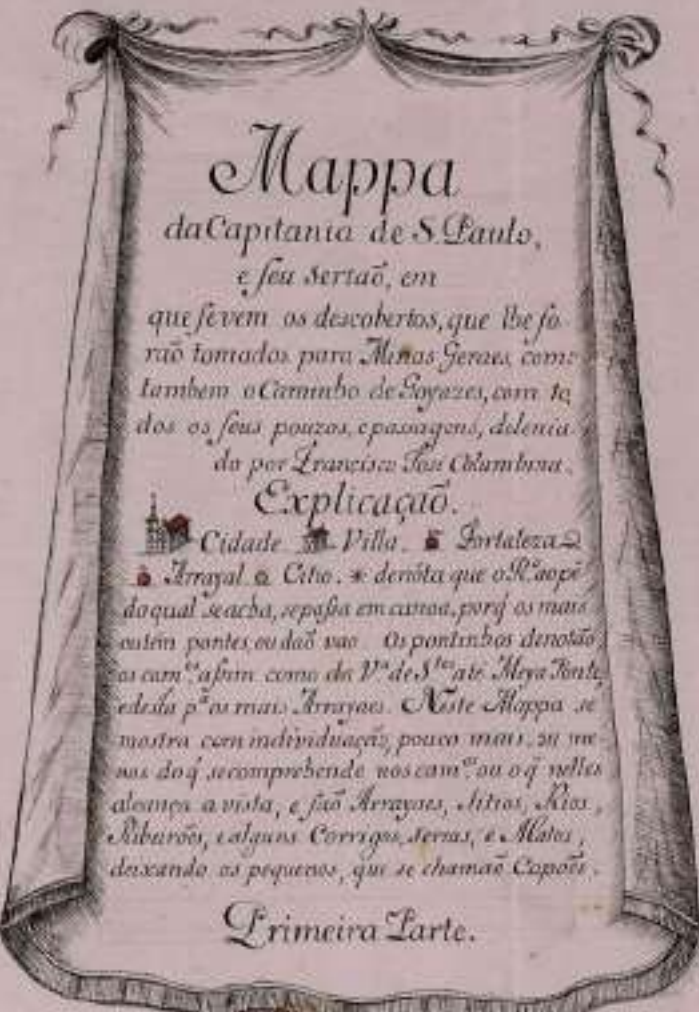 Mappa
da Capitania de S. Paulo,
e seu sertaõ, em
que sevem os descobertos, que lhe fo
raõ tomados para Minas Geraes, como
tambem o Caminho de Goyazes, com to
dos os seus pouzos, e passagens, delenia
do por Francisco Tosi Columbina.
Explicaçaõ.
Cidade Villa. Fortaleza
Arrayal Citio. * denóta que o R.º ao pé
do qual se acha, se passa em canoa, porq̃ os mais
ou tem pontes, ou daõ vao. Os pontinhos denotaõ
os cam.ᵒˢ assim como da V.ª de S.ᵗᵒˢ até Meya Ponte,
e desta p.ª os mais Arrayaes. Neste Mappa se
mostra com individuaçaõ, pouco mais, ou me
nos do q̃ se comprehende nos cam.ᵒˢ ou o q̃ nelles
alcança a vista, e saõ Arrayaes, sitios, Rios,
Ribeirões, e alguns Corrigos, serras, e Matos,
deixando os pequenos, que se chamaõ Capoẽs.
Primeira Parte.